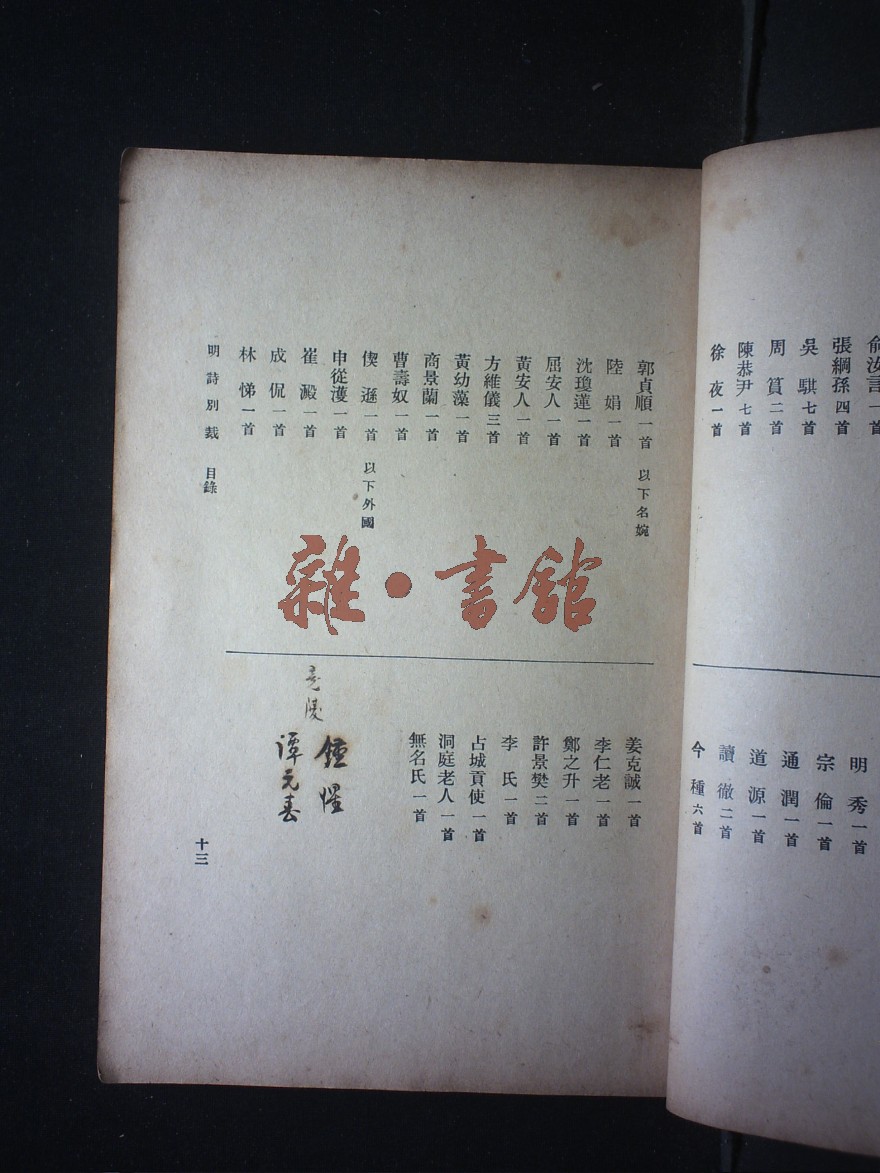 張綱孫 四首
吳騏 七首
周篔 二首
陳恭尹 七首
徐夜 一首
明秀 一首
宗倫 一首
通潤 一首
道源 一首
讀徹 二首
今種 六首
郭貞順 一首 以下名婉
陸娟 一首
沈瓊蓮 一首
屈安人 一首
黃安人 一首
方維儀 三首
黃幼藻 一首
商景蘭 一首
曹壽奴 一首
偰遜 一首 以下外國
申從濩 一首
崔澱 一首
成侃 一首
林悌 一首
姜克誠 一首
李仁老 一首
鄭之升 一首
許景樊 二首
李氏 一首
占城貢使 一首
洞庭老人 一首
無名氏 一首
竟陵
鍾惺
譚元春
明詩別裁 目錄
十三
雜·書館